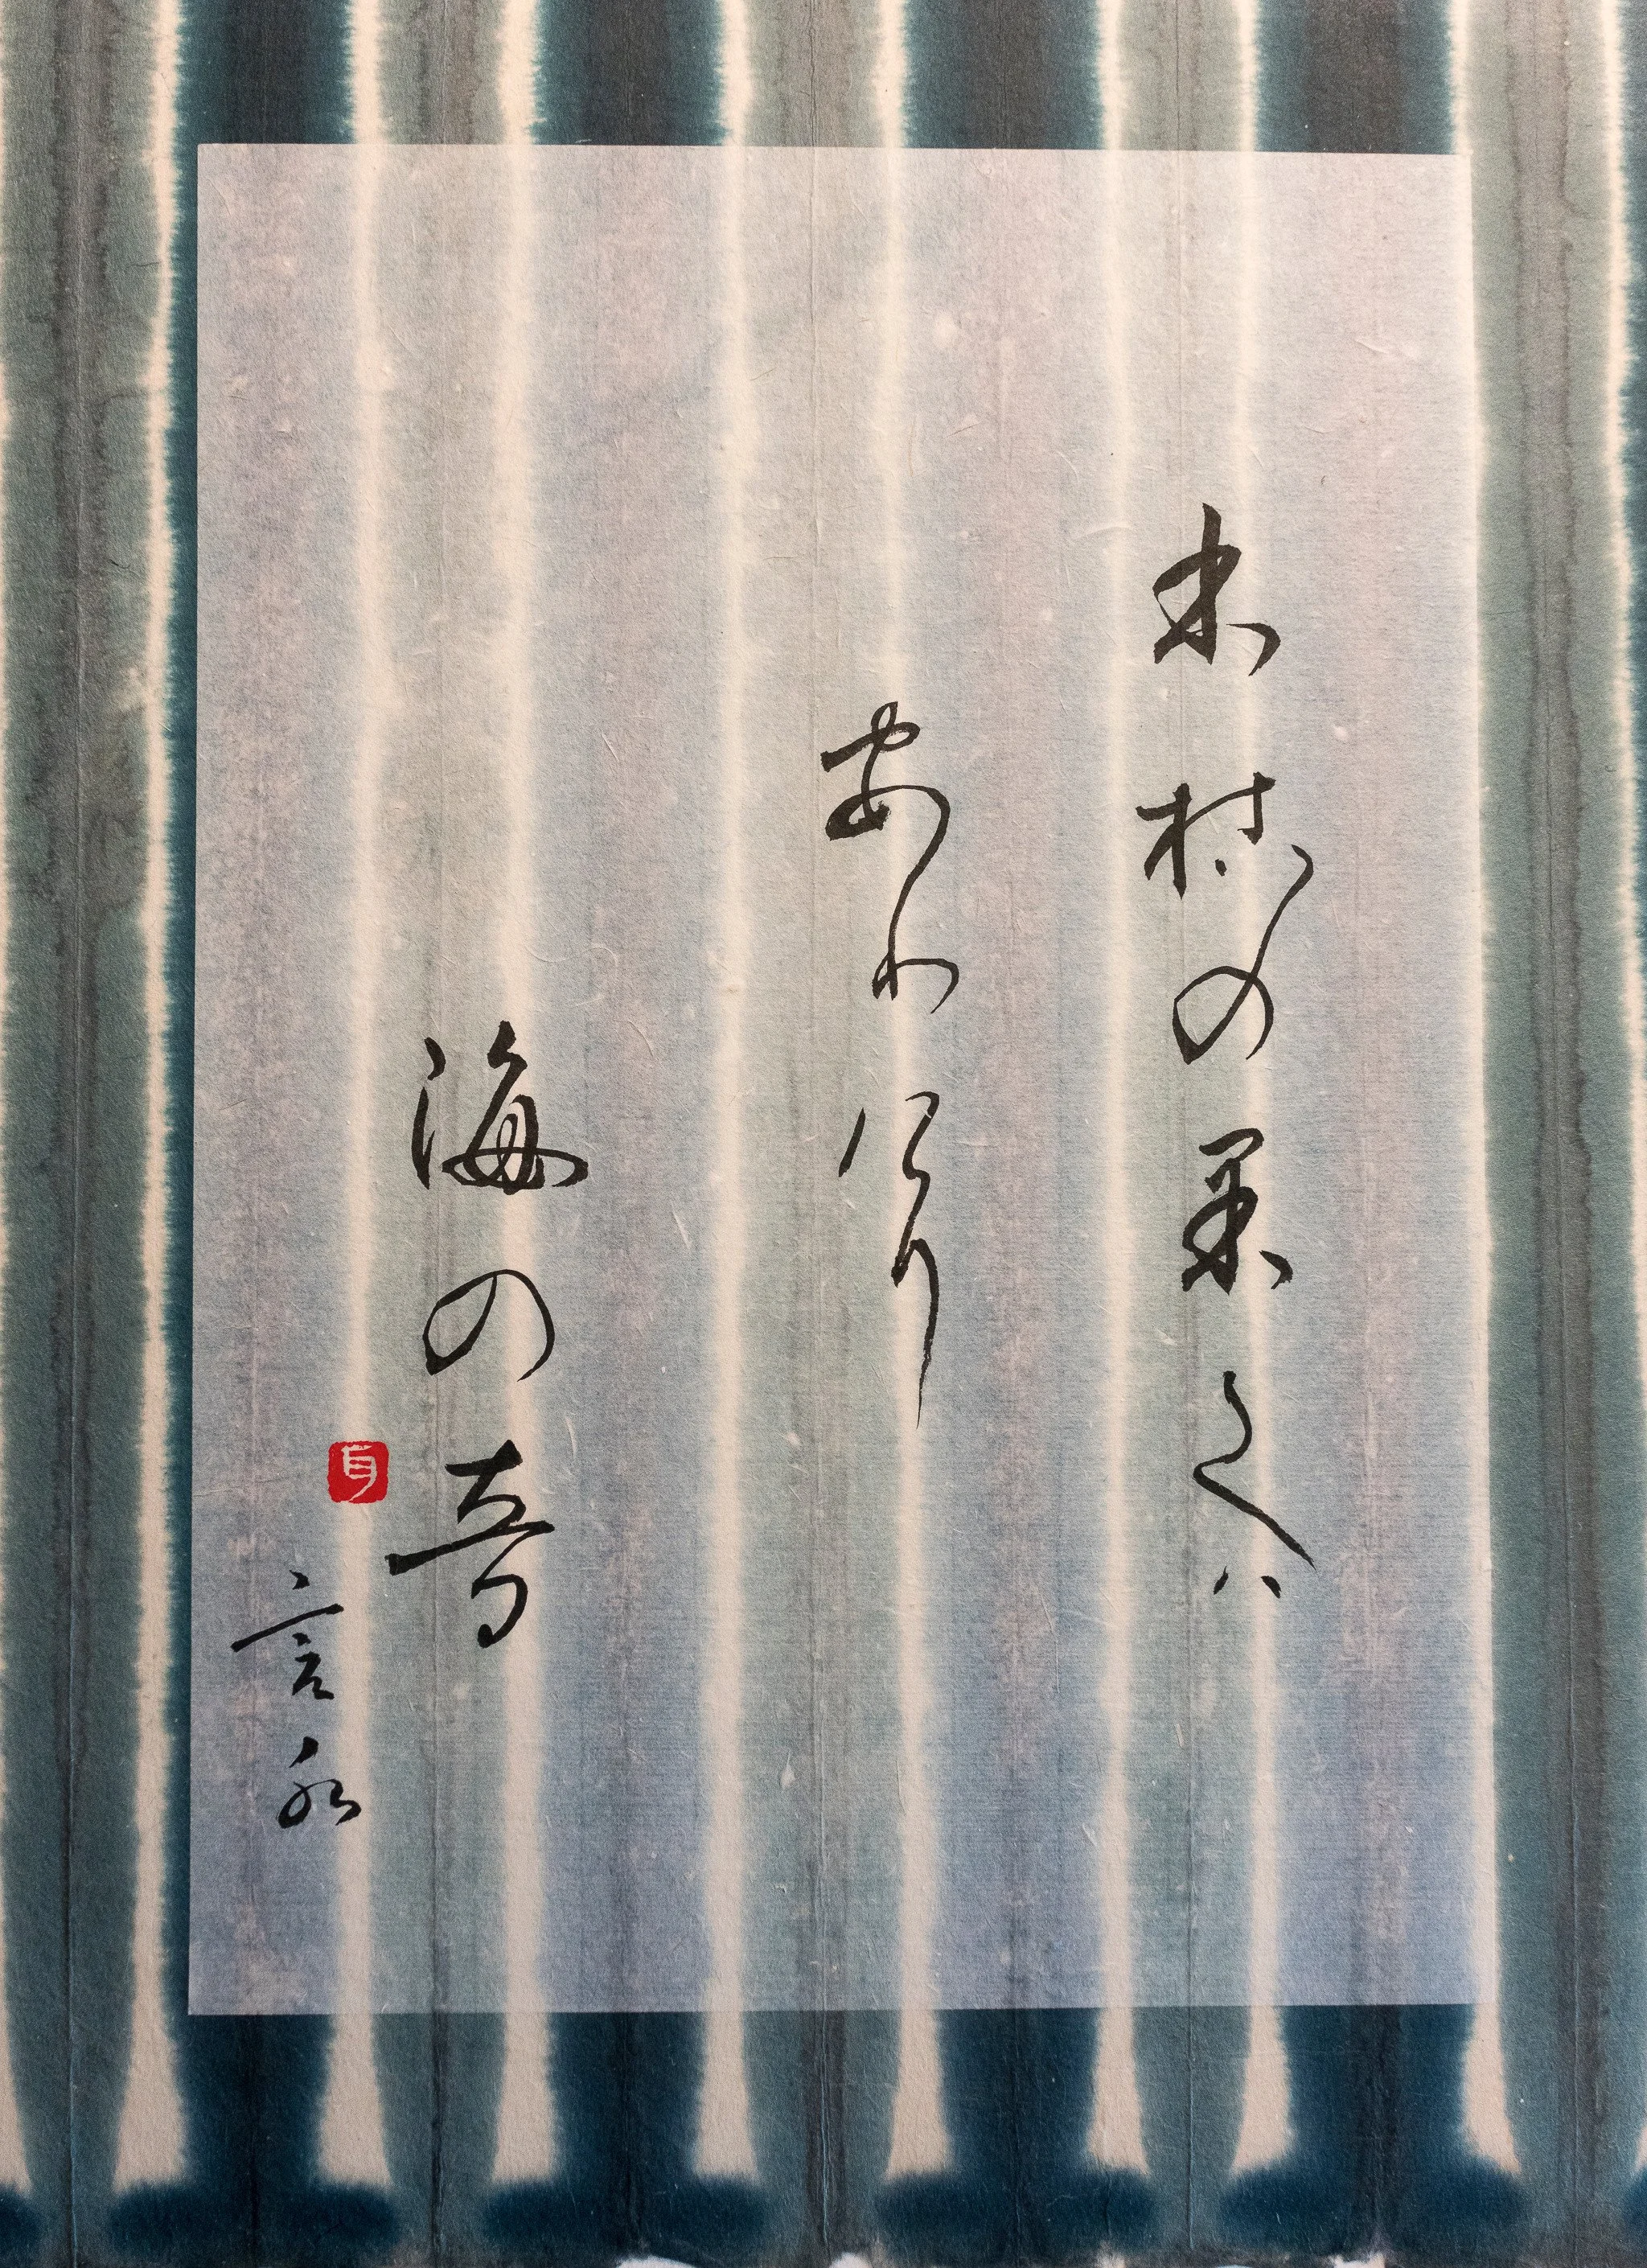 木枯の果てハ
ありけり
海の音
言水